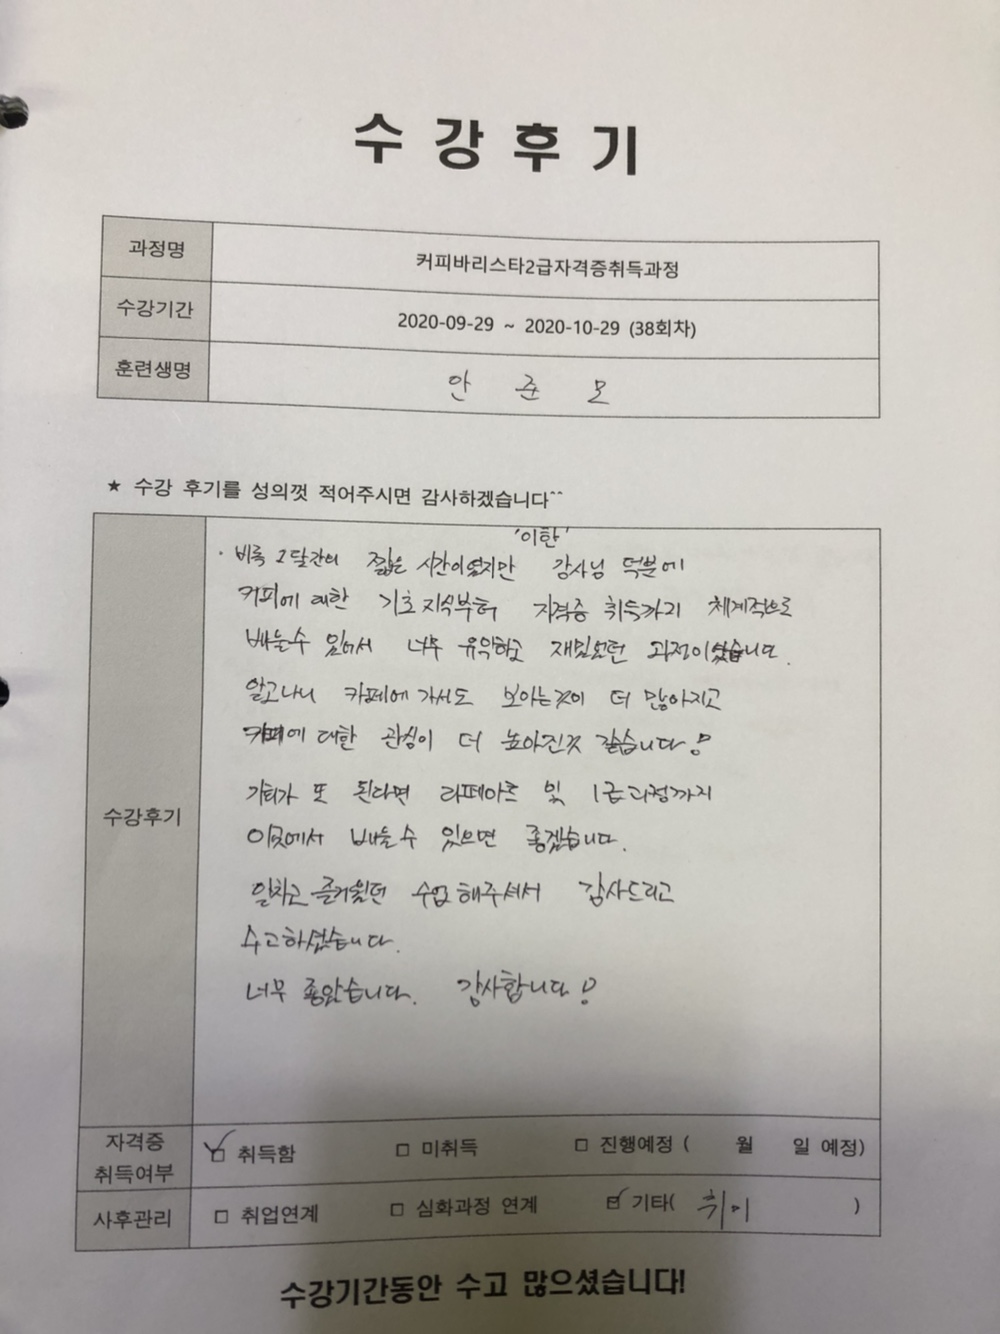 수강후기
과정명 커피바리스타2급자격증취득과정
수강기간 2020-09-29 ~ 2020-10-29 (38회차)
훈련생명 안 준 모
★ 수강 후기를 성의껏 적어주시면 감사하겠습니다^^
'이한'
· 비록 2달간의 짧은 시간이였지만 강사님 덕분에
커피에 대한 기초지식부터 자격증 취득까지 체계적으로
배울수 있어서 너무 유익하고 재밌었던 과정이였습니다.
알고나니 카페에 가서도 보이는것이 더 많아지고
커피에 대한 관심이 더 높아진것 같습니다!
기회가 또 된다면 라떼아트 및 1급과정까지
이곳에서 배울수 있으면 좋겠습니다.
알차고 즐거웠던 수업 해주셔서 감사드리고
수고하셨습니다.
너무 좋았습니다. 감사합니다!
수강후기
자격증
취득여부 취득함 미취득 진행예정 ( 월 일 예정)
사후관리 취업연계 심화과정 연계 기타( 취미 )
수강기간동안 수고 많으셨습니다!